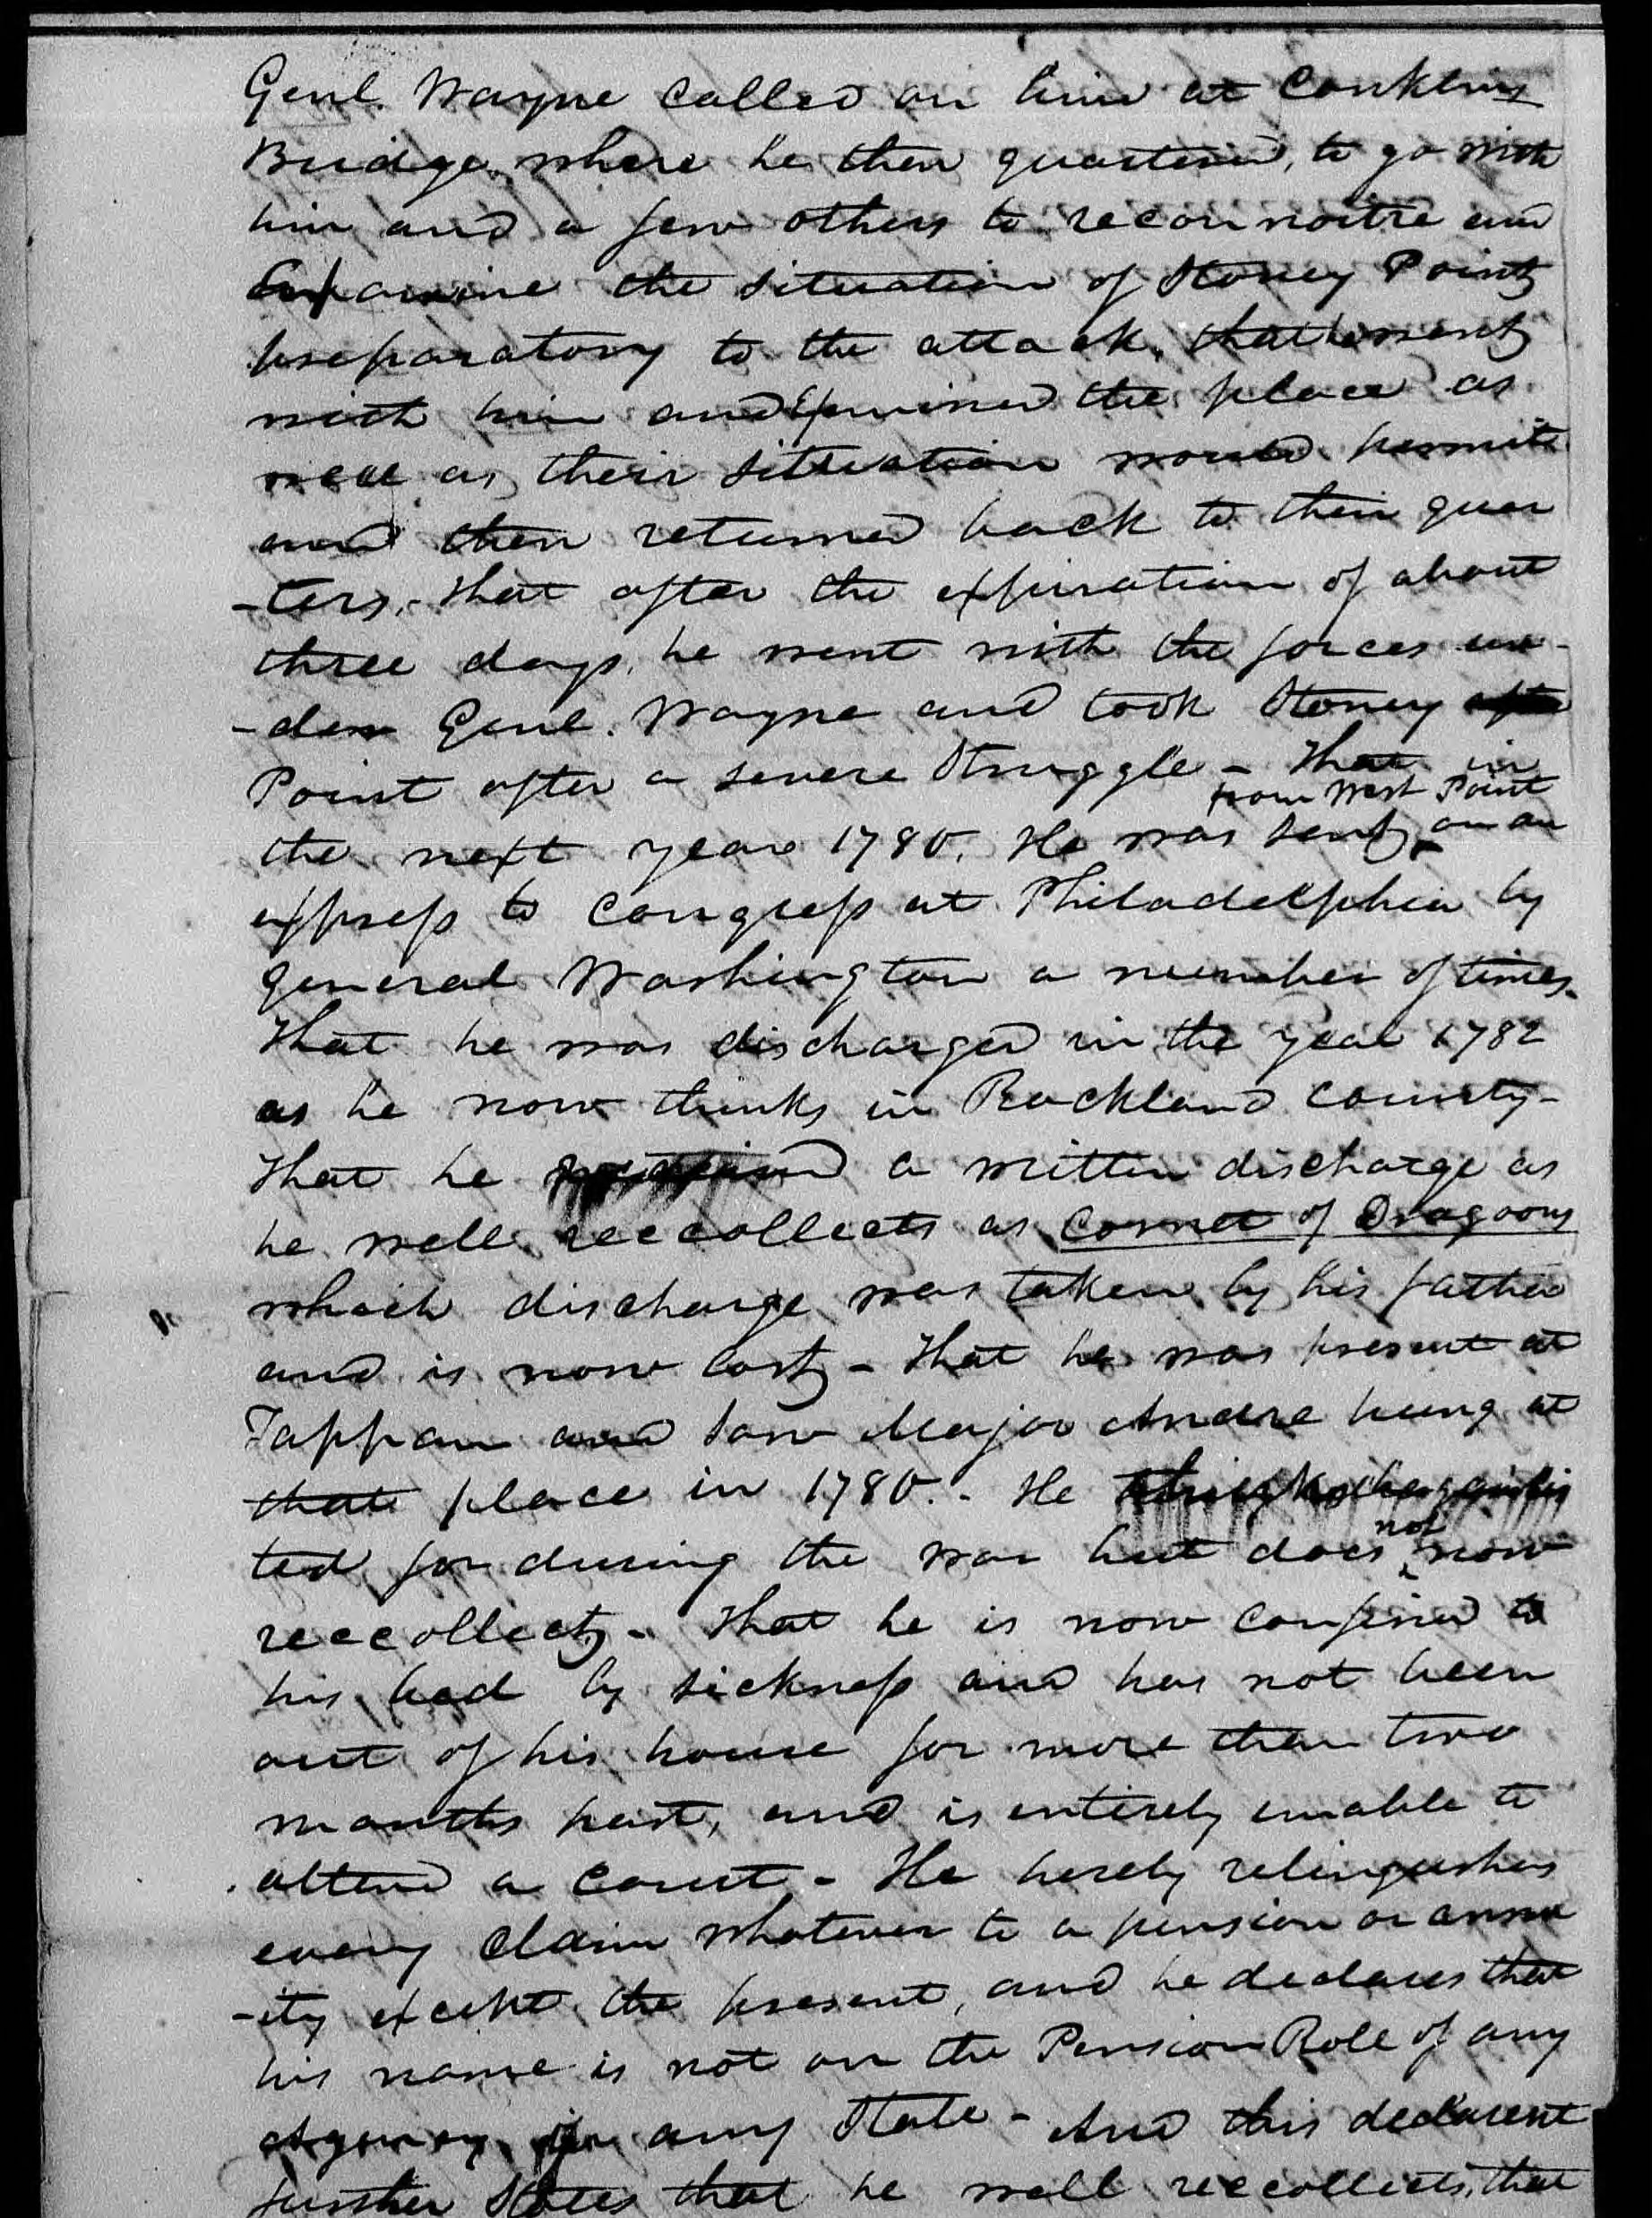 Genl. Wayne called on him at Conklins
Bridge where he then quartered, to go with
him and a few others to reconnoitre and
Examine the situation of Stoney Point
preparatory to the attack, that went
with him and Examined the place as
well as their situation would permit
and then returned back to their quar
-ters. That after the expiration of about
three days, he went with the forces un-
-der Genl. Wayne and took Stoney after
Point after a severe struggle - That in
from West Point
the next year 1780. He was sent on an
express to Congress at Philadelphia by
General Washington a number of times.
That he was discharged in the year 1782
as he now thinks in Rockland County-
That he received a written discharge as
he well reccollects as Cornet of Dragoons
which discharge was taken by his father
and is now lost - That he was present at
Tappan and saw Major Andre hung at
that place in 1780. - He thinks he
not
ted for during the war but does now
reccollect - That he is now confined to
his bed by sickness and has not been
out of his house for more than two
months past, and is entirely unable to
attend a Court - He hereby relinquishes
every Claim whatever to a pension or annu
-ity except the present, and he declares that
his name is not on the Pension Role of any
Agency in any State - And this declarent
further States that he well reccollects, that